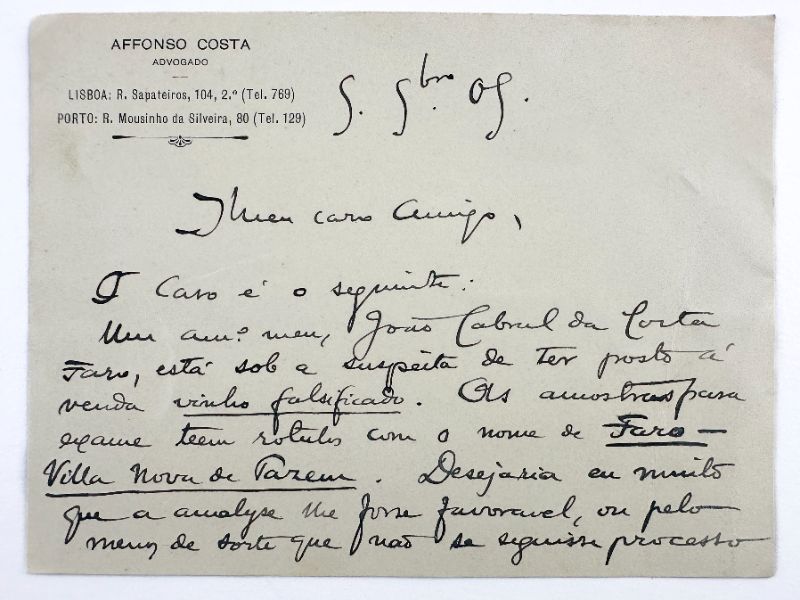 AFFONSO COSTA
ADVOGADO
LISBOA: R. Sapateiros, 104, 2.º (Tel. 769)
PORTO: R. Mousinho da Silveira, 80 (Tel. 129)
5. 9bro 05.
Meu caro Amigo,
O Caso é o seguinte:
Um am.º meu, João Cabral da Costa
Faro, está sob a suspeita de ter posto á
venda vinho falsificado. As amostras para
exame teem rotulos com o nome de Faro –
Villa Nova de Tazem. Desejaria eu muito
que a analyse lhe fosse favoravel, ou pelo
menos de sorte que não se seguisse processo